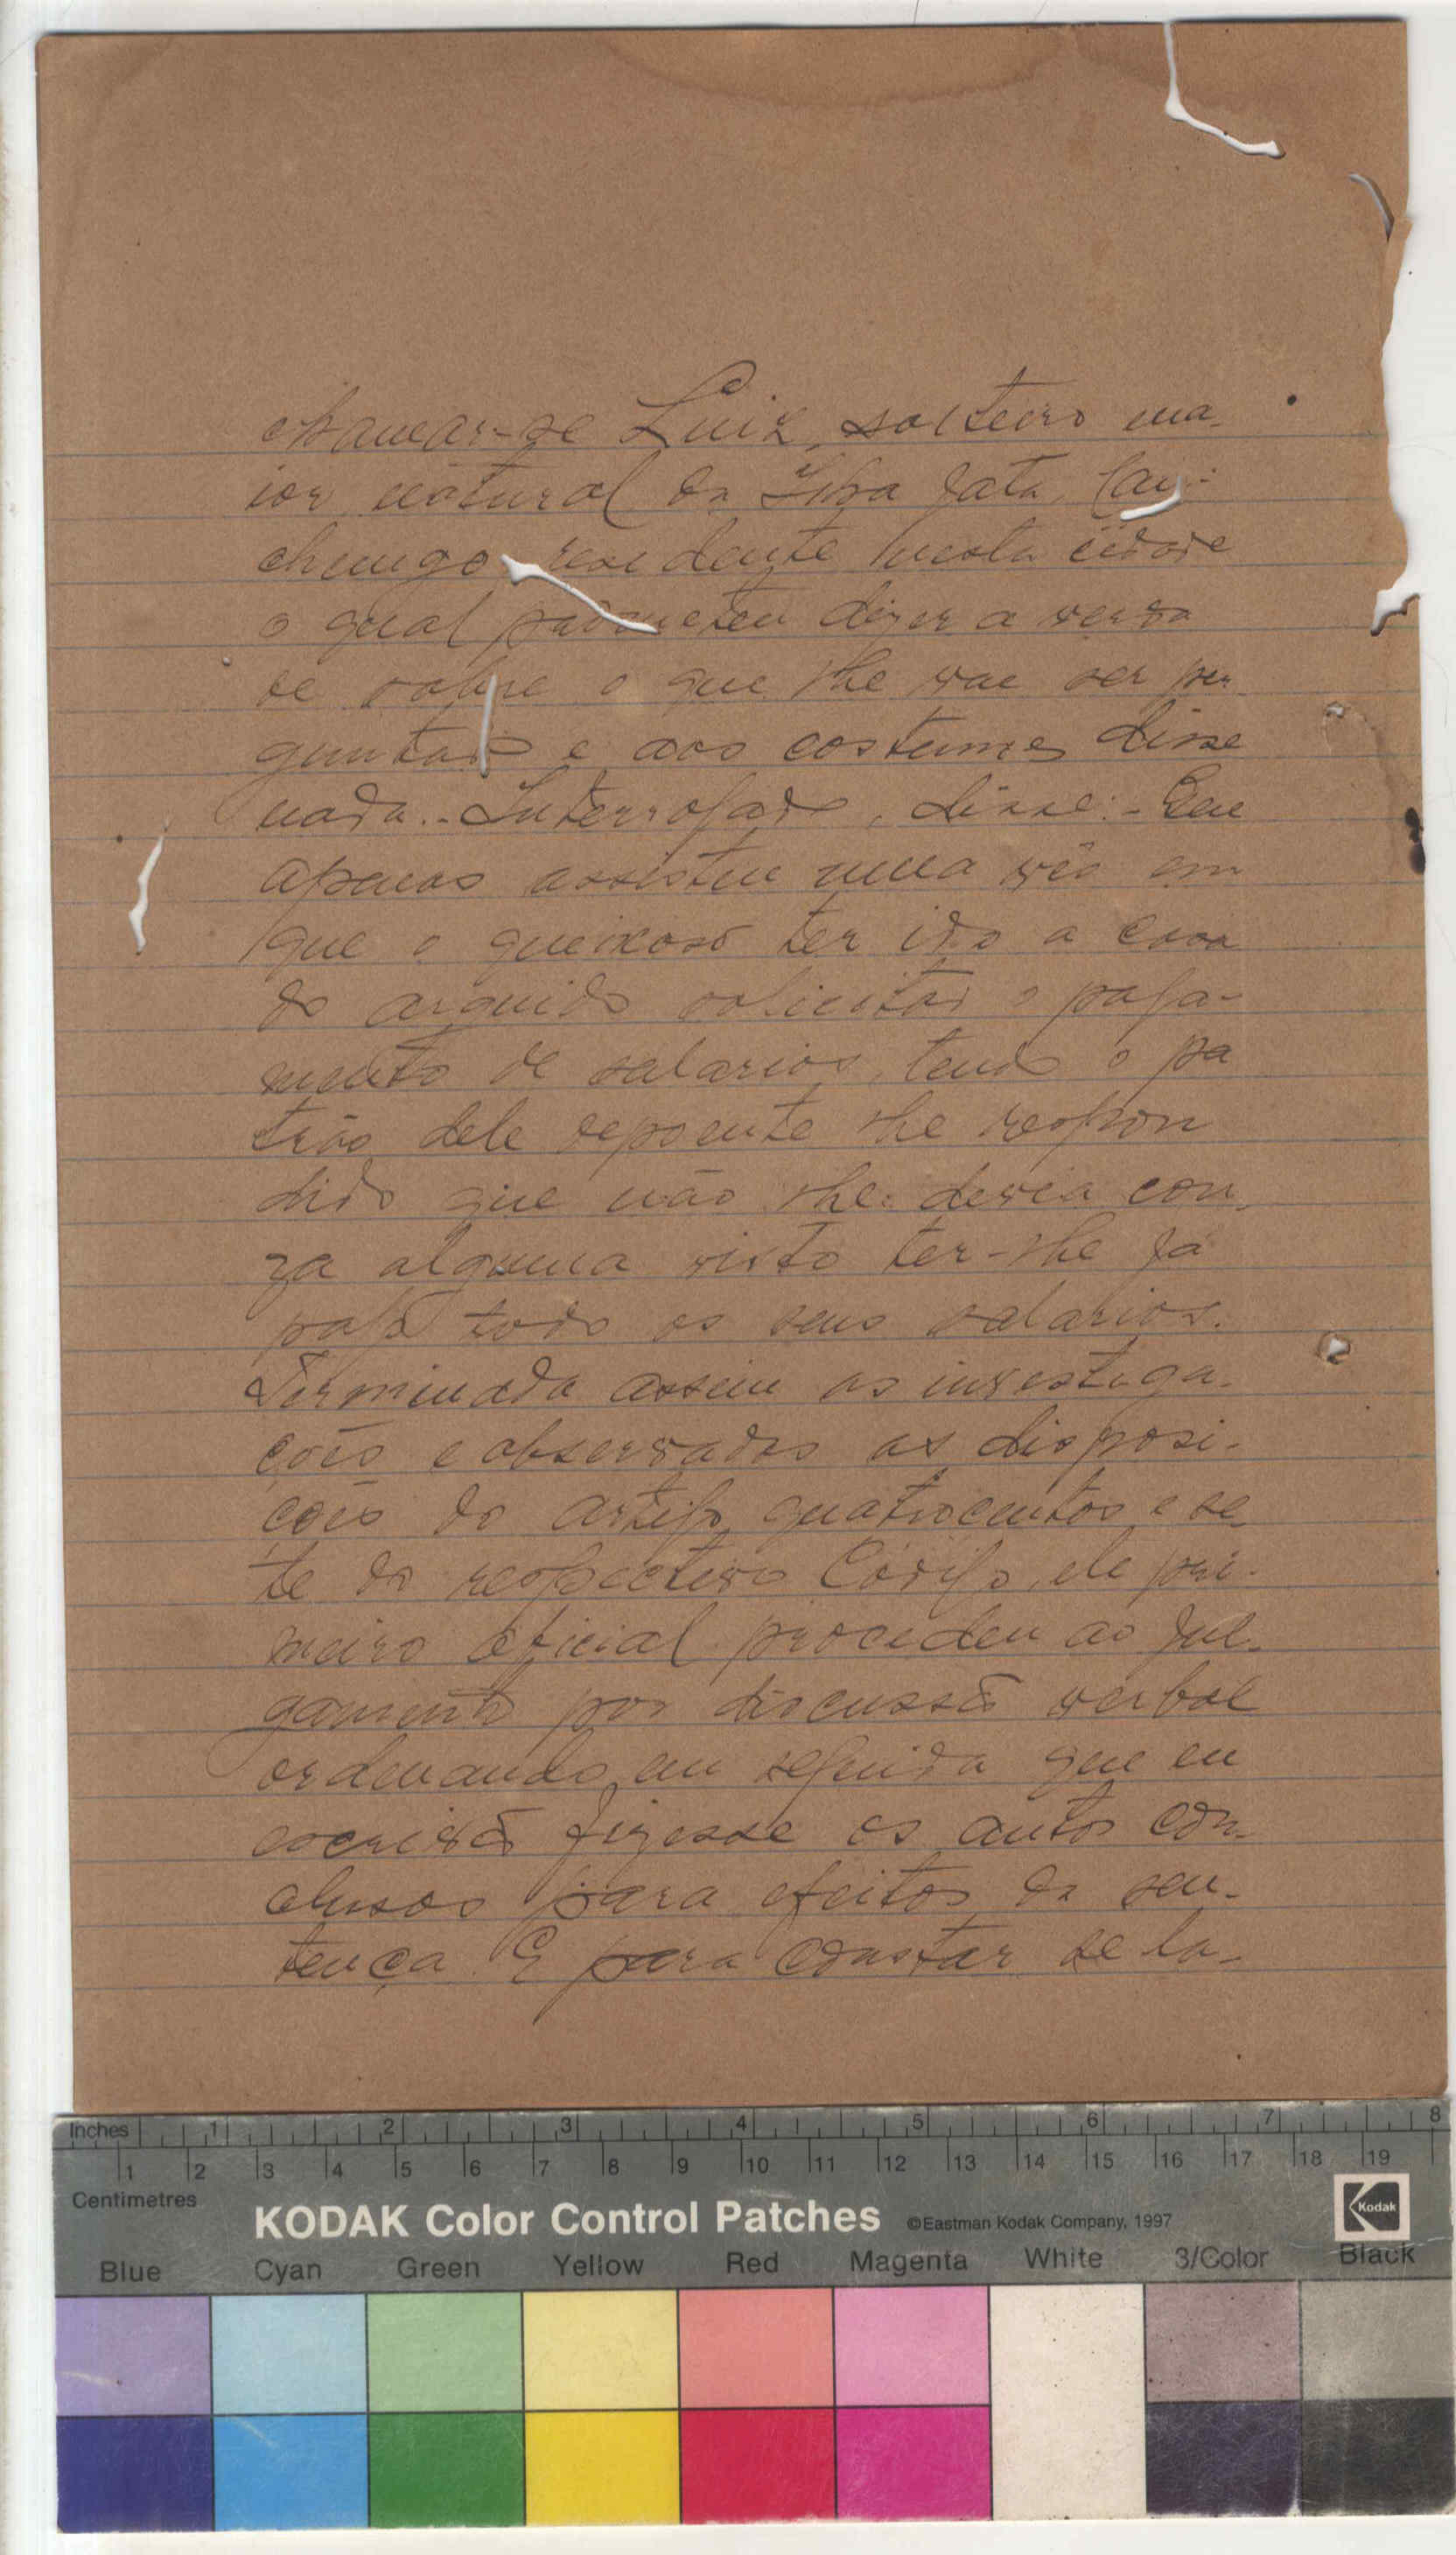 chamar-se Luiz, solteiro ma-
ior natural da Ilha Jata,
residente nesta cidade
o qual prometeu dizer a verda
de sobre o que lhe vae ser per
guntado e aos costumes disse
nada.- Interrogado, disse:- Que
apenas assistiu uma vês em
que o queixoso ter ido a casa
do arguido solicitar o paga-
mento de salarios, tendo o pa
trão dele depoente lhe respon
dido que não lhe devia cou-
za alguma visto ter-lhe já
pago todo os seus salarios.
Terminada assim as investiga-
ções e observadas as disposi-
ções do artigo quatrocentos e se-
te do respectivo Código, ele pri-
meiro oficial procedeu ao jul-
gamento por discussão verbal
ordenando em seguida que eu
escrivão fizesse os autos con-
clusos para efeitos da sen-
tença. E para constar se la-
Inches 1 2 3 4 5 6 7 8
1 2 3 4 5 6 7 8 9 10 11 12 13 14 15 16 17 18 19
Centimetres
KODAK Color Control Patches ©Eastman Kodak Company, 1997 Kodak
Blue Cyan Green Yellow Red Magenta White 3/Color Black